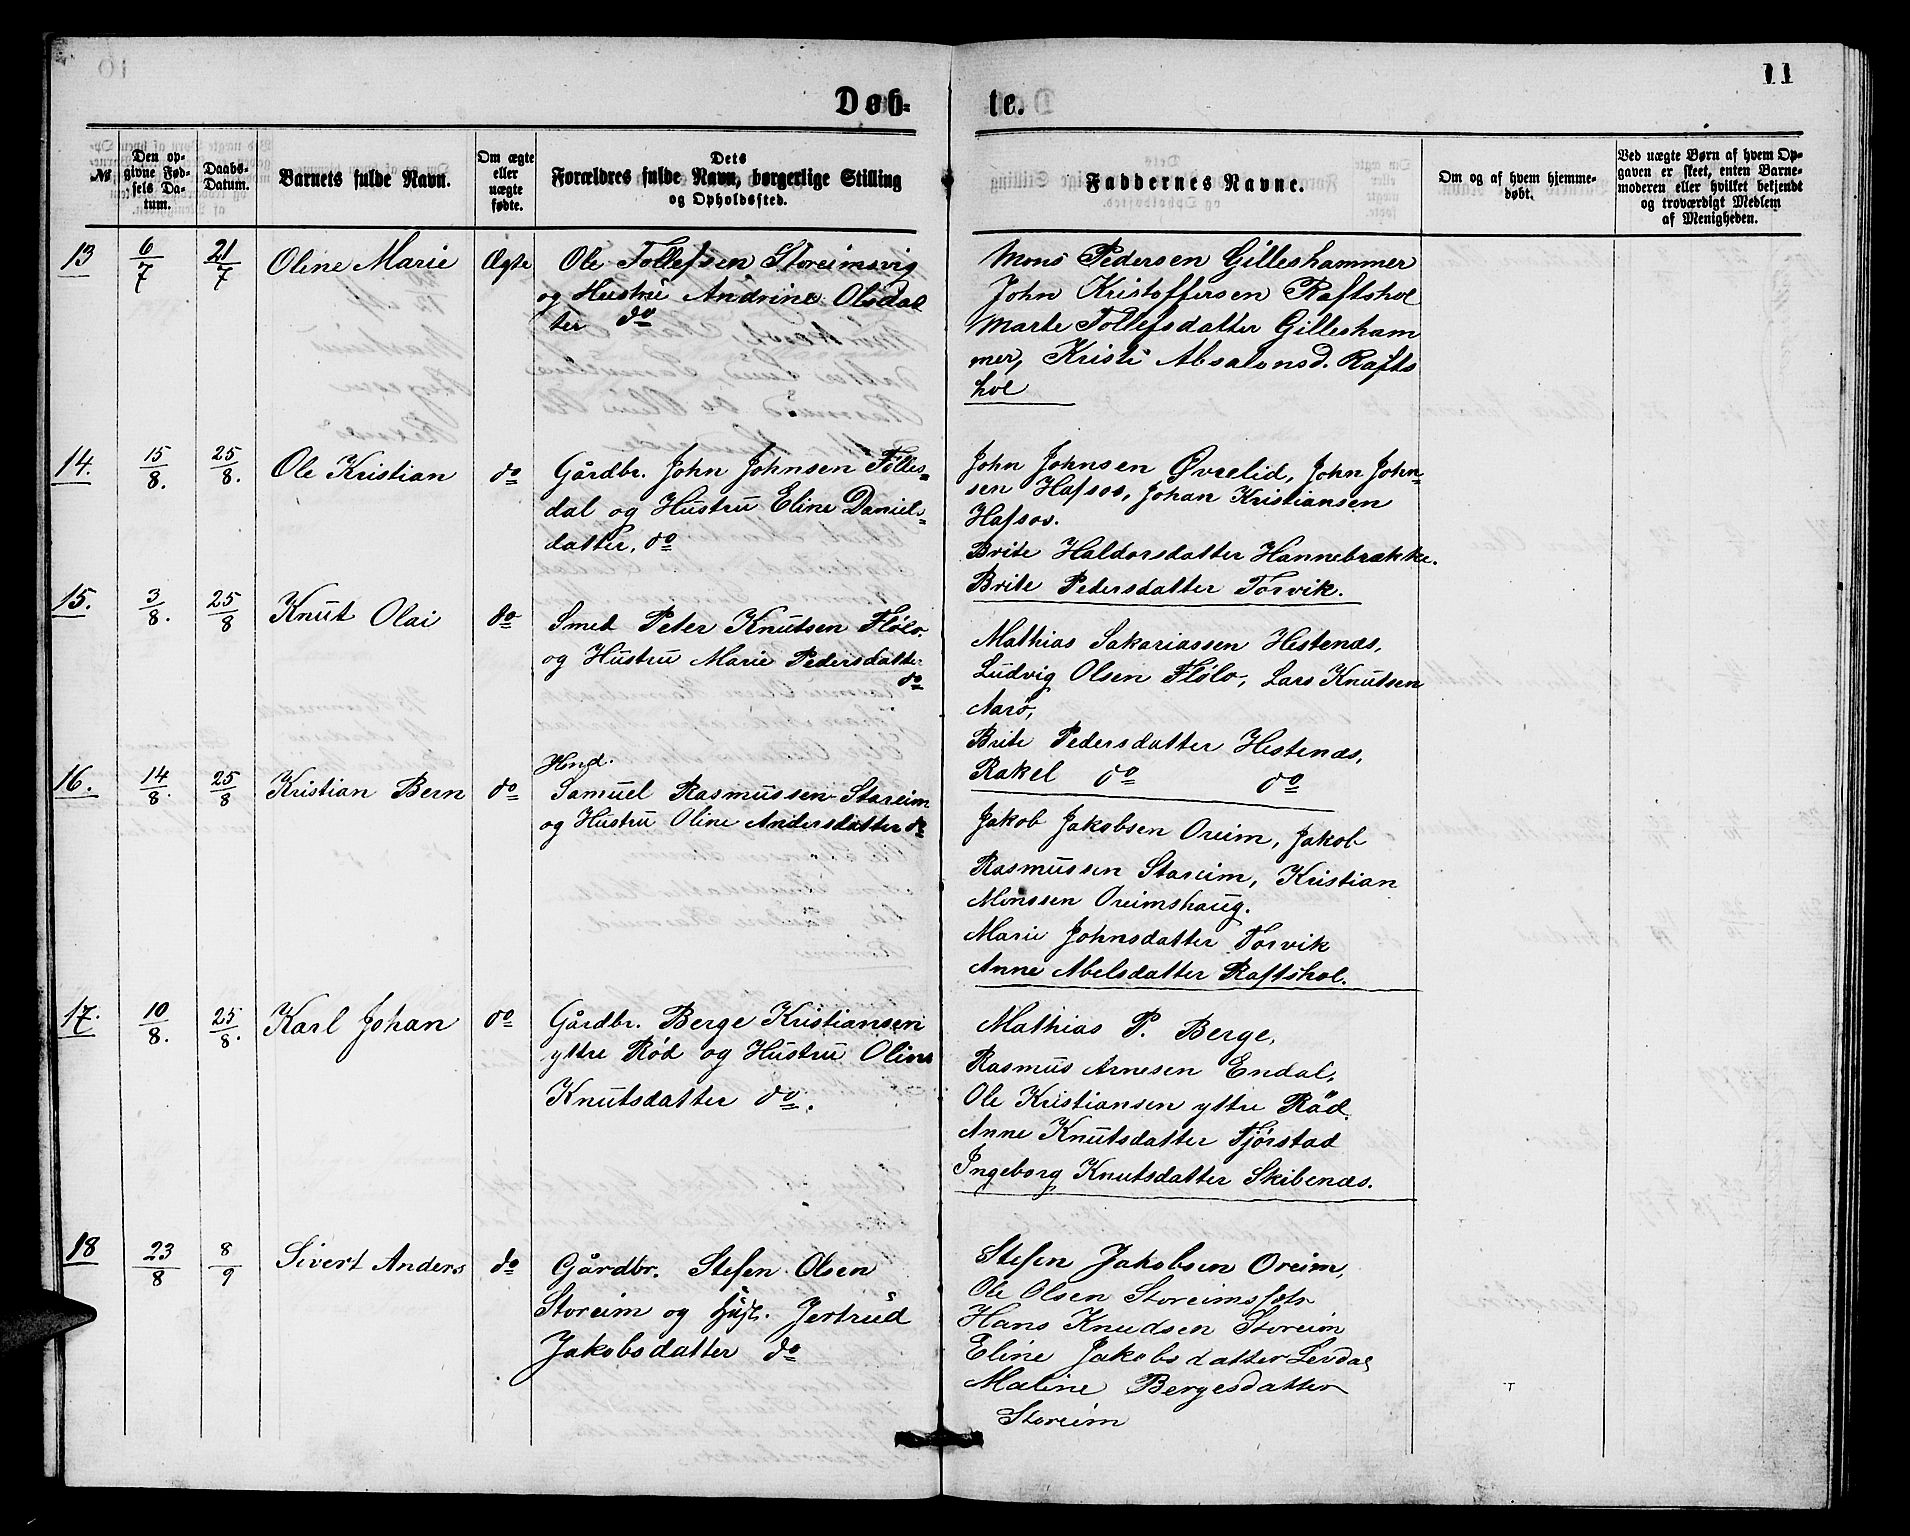 11
Døb- te.
№
Den opgivne Fødsels Datum.
Daabs-Datum.
Barnets fulde Navn.
Om ægte eller uægte fødte.
Dets Forældres fulde Navn, borgerlige Stilling og Opholdssted.
Faddernes Navne.
Om og af hvem hjemmedøbt.
Ved uægte Børn af hvem Opgaven er skeet, enten Barnemoderen eller hvilket bekjendt og troværdigt Medlem af Menigheden.
13 6/7 21/7 Oline Marie Ægte
Ole Tollefsen Storeimsvig
og Hustru Andrine Olsdat
ter do
Mons Pedersen Gilleshammer
John Kristoffersen Raftshol
Marte Tollefsdatter Gillesham
mer, Kristi Absalonsd. Rafts
hol
14. 15/8. 25/8. Ole Kristian do
Gårdbr. John Johnsen Tilles-
dal og Hustru Eline Daniels-
datter, do
John Johnsen Øvrelid, John John-
sen Hafsos, Johan Kristiansen
Hafsos.
Brite Haldorsdatter Hannebrække.
Brite Pedersdatter Torvik.
15. 3/8. 25/8 Knut Olai do
Smed Peter Knutsen Flølo
og Hustru Marie Pedersdatter
do
Mathias Sakariassen Hestenæs,
Ludvig Olsen Flølo, Lars Knutsen
Aarö,
Brite Pedersdatter Hestenæs,
Rakel do do
16. 14/8. 25/8 Kristian Bern do
Hmd.
Samuel Rasmussen Stareim
og Hustru Oline Andersdatter do
Jakob Jakobsen Oreim, Jakob
Rasmussen Stareim, Kristian
Monssen Oreimshaug.
Marie Johnsdatter Torvik
Anne Abelsdatter Raftshol.
17. 10/8. 25/8. Karl Johan do
Gårdbr. Berge Kristiansen
yttre Rød og Hustru Oline
Knutsdatter do.
Mathias P. Berge,
Rasmus Arnesen Endal,
Ole Kristiansen yttre Röd.
Anne Knutsdatter Fjørstad
Ingeborg Knutsdatter Skibenæs.
18 23/8 8/9 Sivert Anders do
Gårdbr. Stefen Olsen
Storeim og Hust. Jertrud
Jakobsdatter do
Stefen Jakobsen Oreim,
Ole Olsen Storeimsfætr
Hans Knudsen Storeim
Eline Jakobsdatter Levdal
Maline Bergesdatter
Storeim